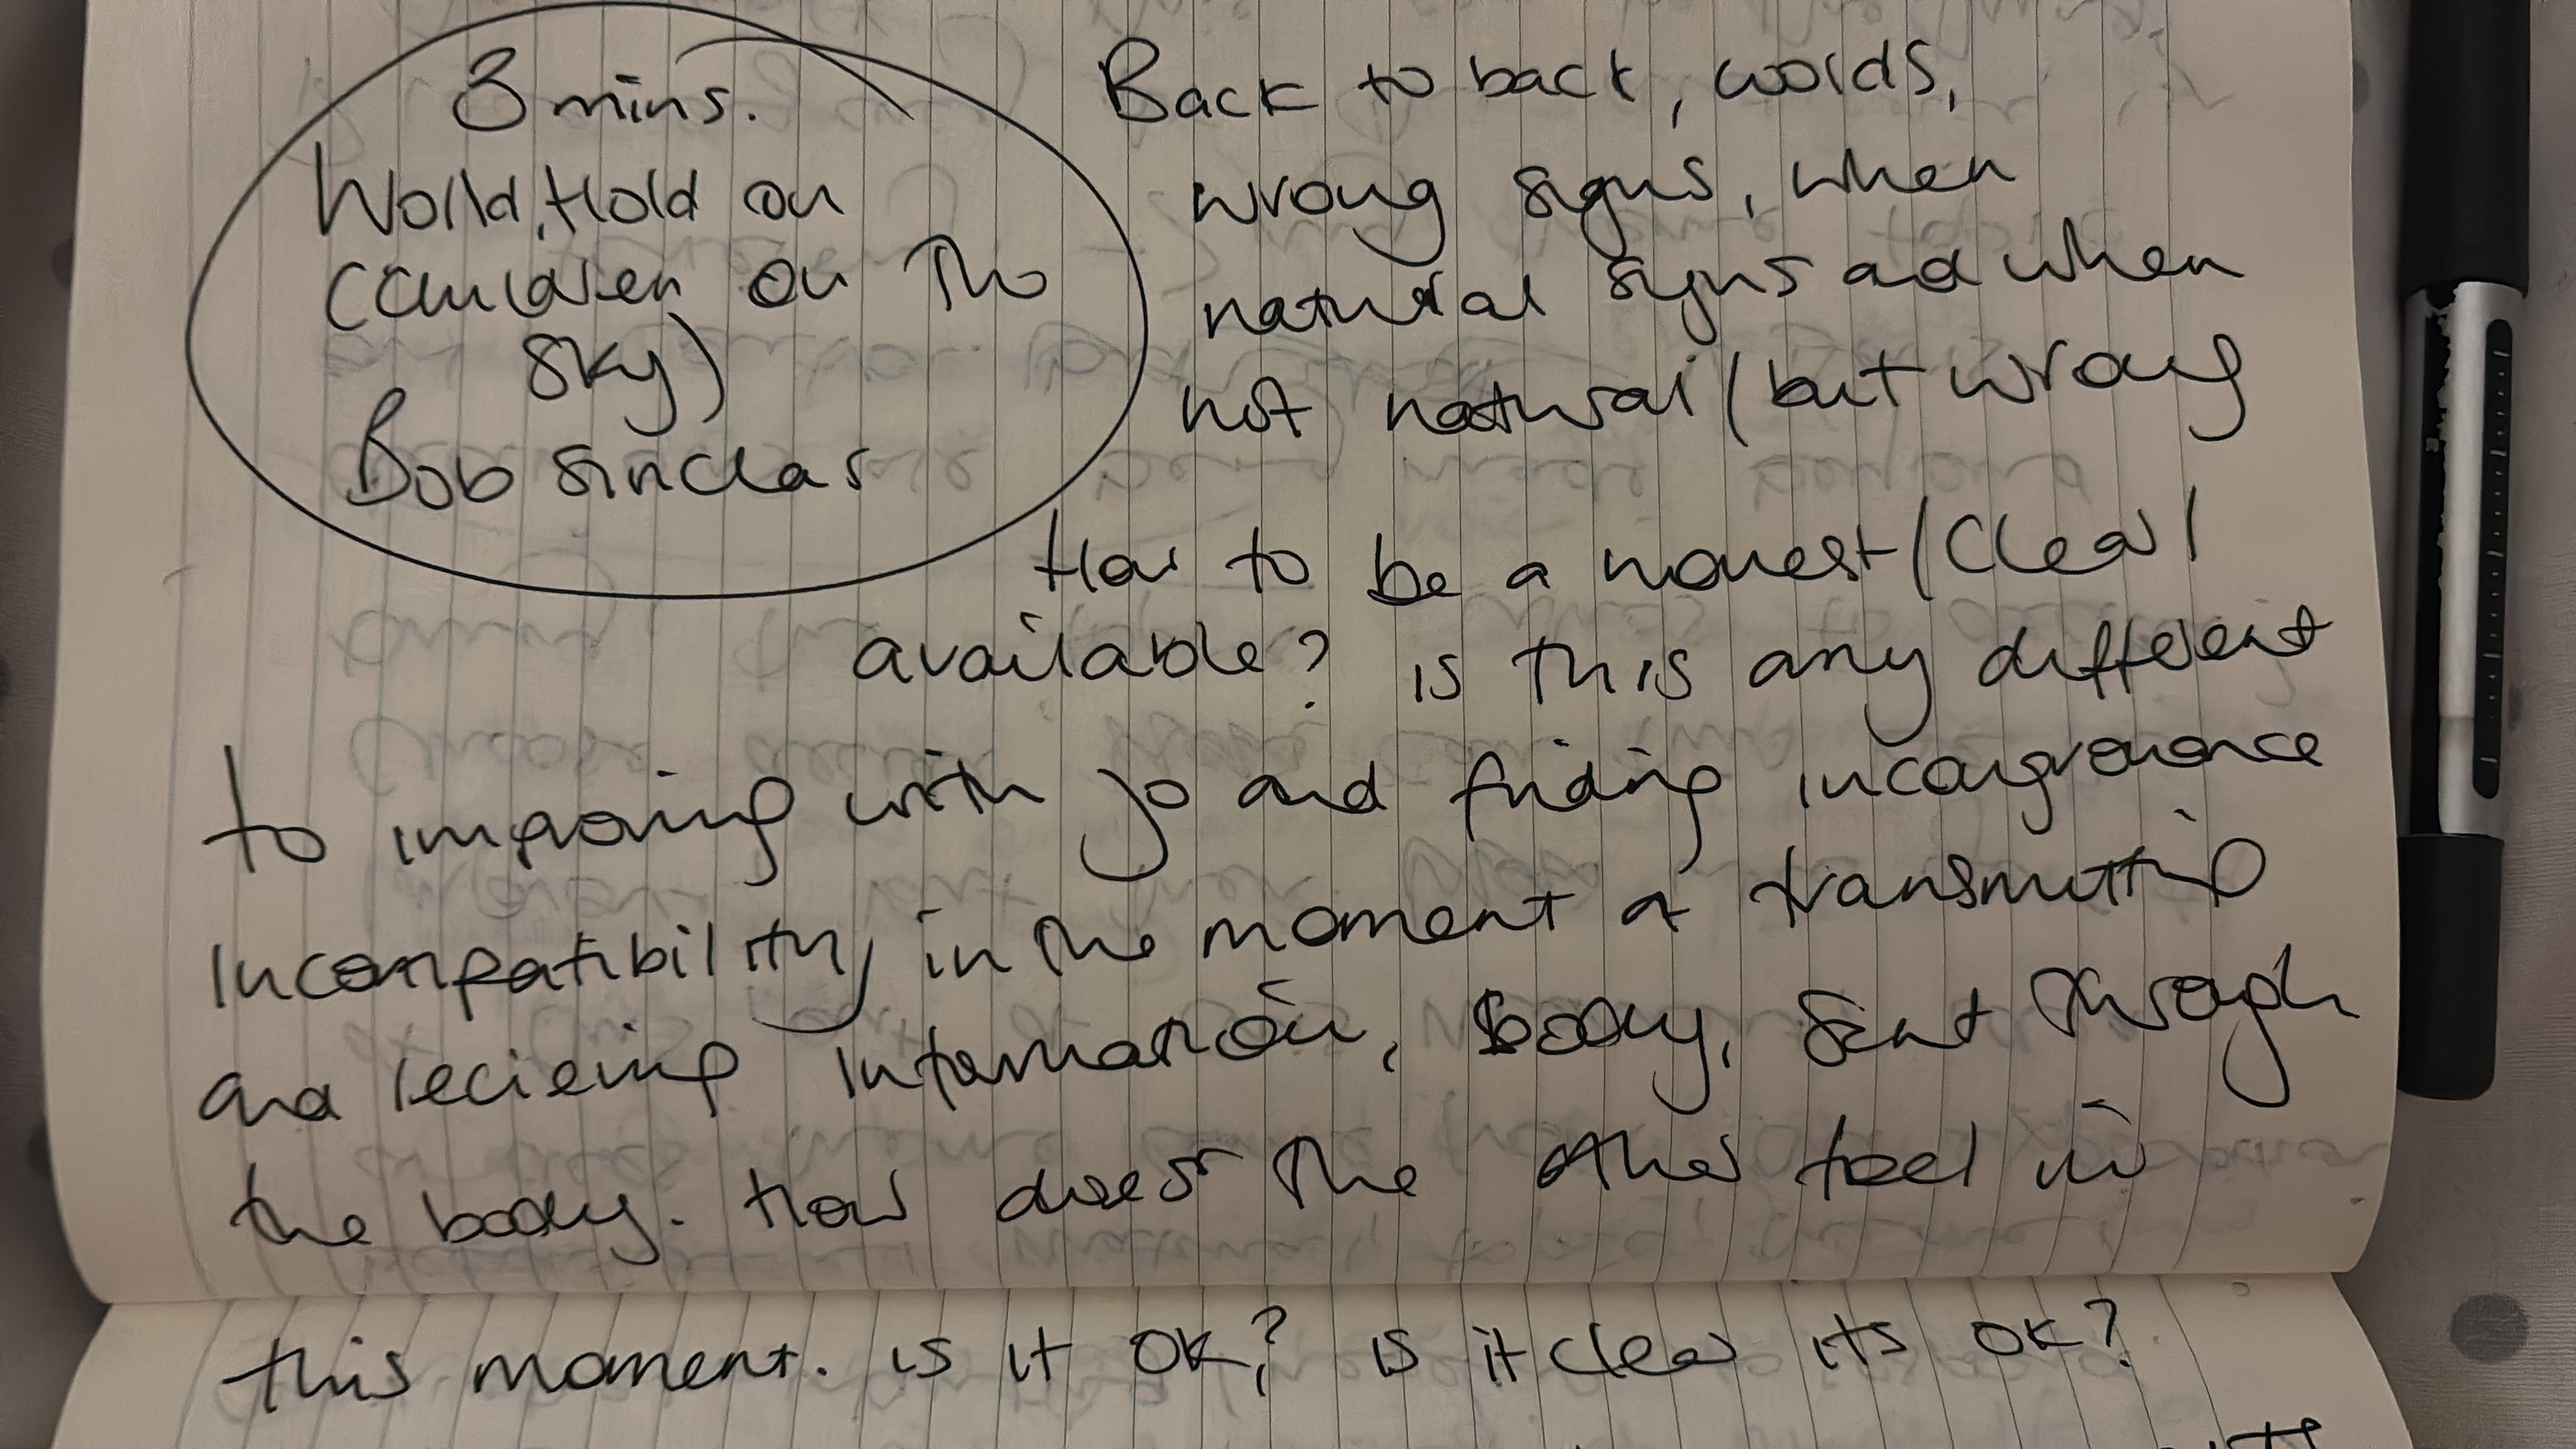 3 mins.
World, Hold on
(Children on the
sky)
Bob Sinclar
Back to back, words,
wrong signs, when
natural signs and when
not natural / but wrong
How to be a honest / clear /
available? is this any different
to improving with Jo and finding
incompatibility in the moment of transmitting
and recieving information, body, sent through
the body. How does the other feel in
this moment. is it OK? is it clear its OK?